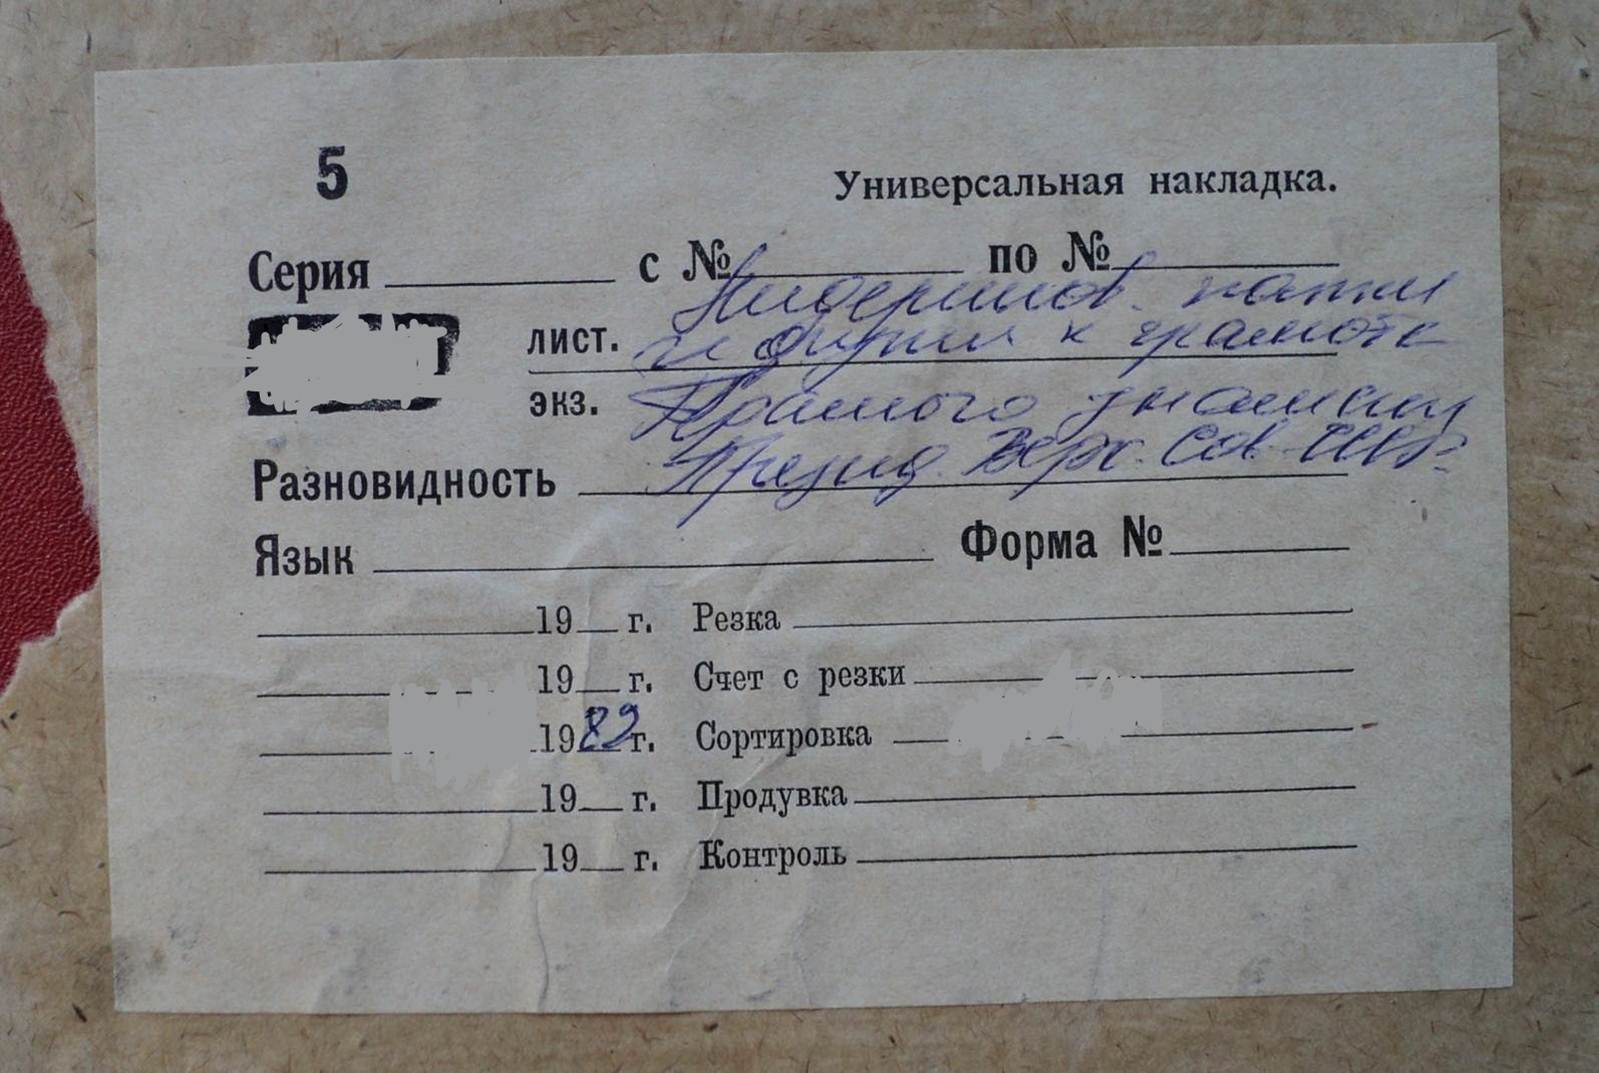 5
Универсальная накладка.
Серия с № по №
лист. папки
и к грамоте
экз. знамени
Разновидность Презид. Верх. Сов.
Язык Форма №
19 г. Резка
19 г. Счет с резки
1982 г. Сортировка
19 г. Продувка
19 г. Контроль